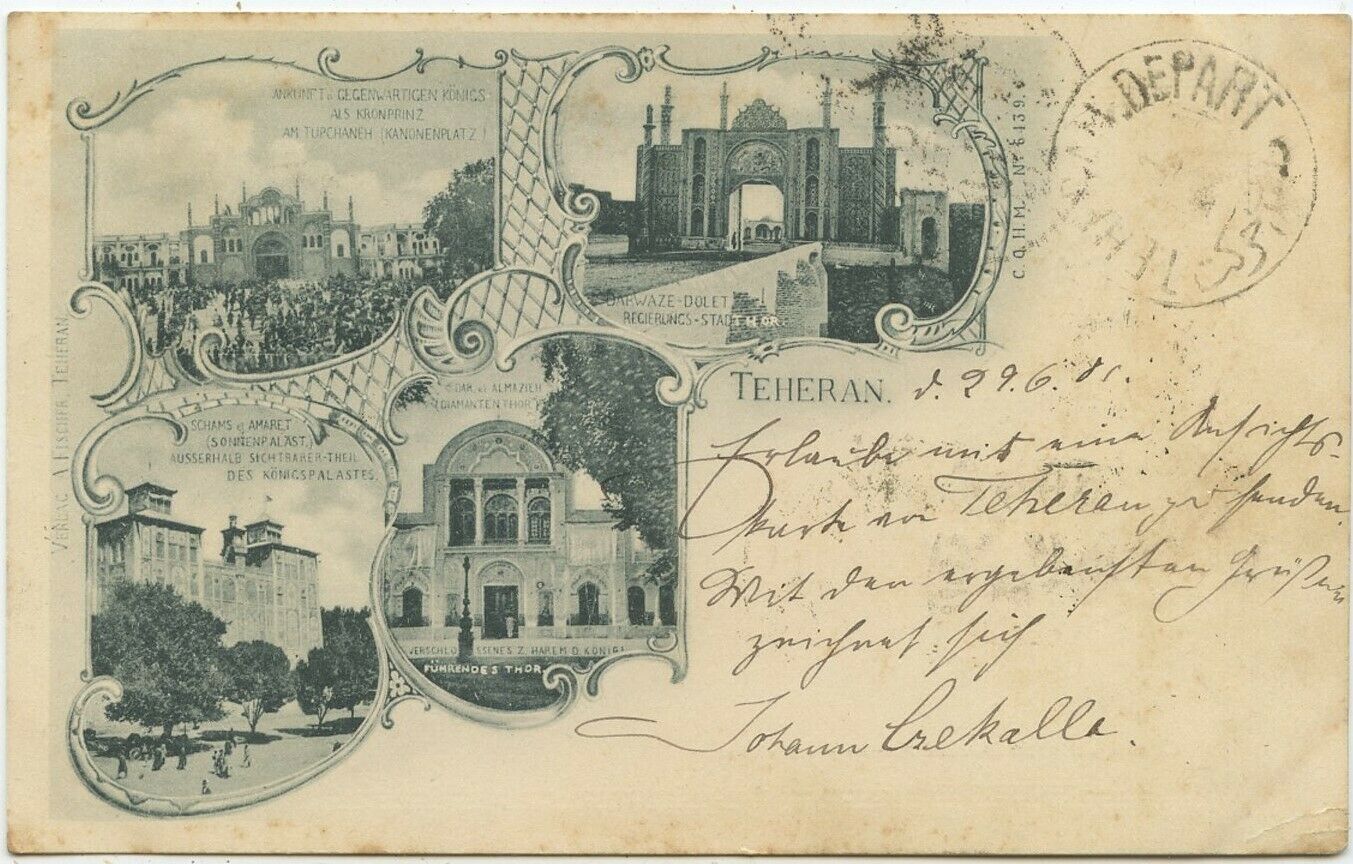 ANKUNFT d. GEGENWÄRTIGEN KÖNIGS-
ALS KRONPRINZ
AM TUPCHANEH (KANONENPLATZ)
DARWAZE-DOLET
REGIERUNGS-STADTTHOR.
C.Q.H.M. No 6139.
TEHERAN. DEPART
SCHAMS el AMARET
(SONNENPALAST.)
AUSSERHALB SICHTBARER-THEIL
DES KÖNIGSPALASTES.
DAR. el ALMAZIEH
(DIAMANTENTHOR)
VERSCHLOSSENES Z. HAREM D. KÖNIGS
FÜHRENDES THOR
VERLAG A. FISCHER TEHERAN
TEHERAN. d. 29.6.01.
Erlaube mir eine Ansichts-
karte von Teheran zu senden.
Mit den ergebensten Grüßen
zeichnet sich
Johann Czekalla.